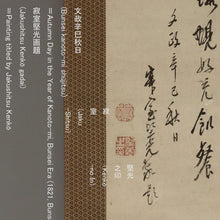 文政辛巳秋日
堅光
之印
(Kenkō
-no in)
寂
室
(Jaku
-shitsu)
文政辛巳秋日
(Bunsei kanoto-mi shūjitsu)
=Autumn Day in the Year of Kanoto-mi, Bunsei Era (1821, Buns
寂室堅光画題
(Jakushitsu Kenkō gadai)
=Painting titled by Jakushitsu Kenkō